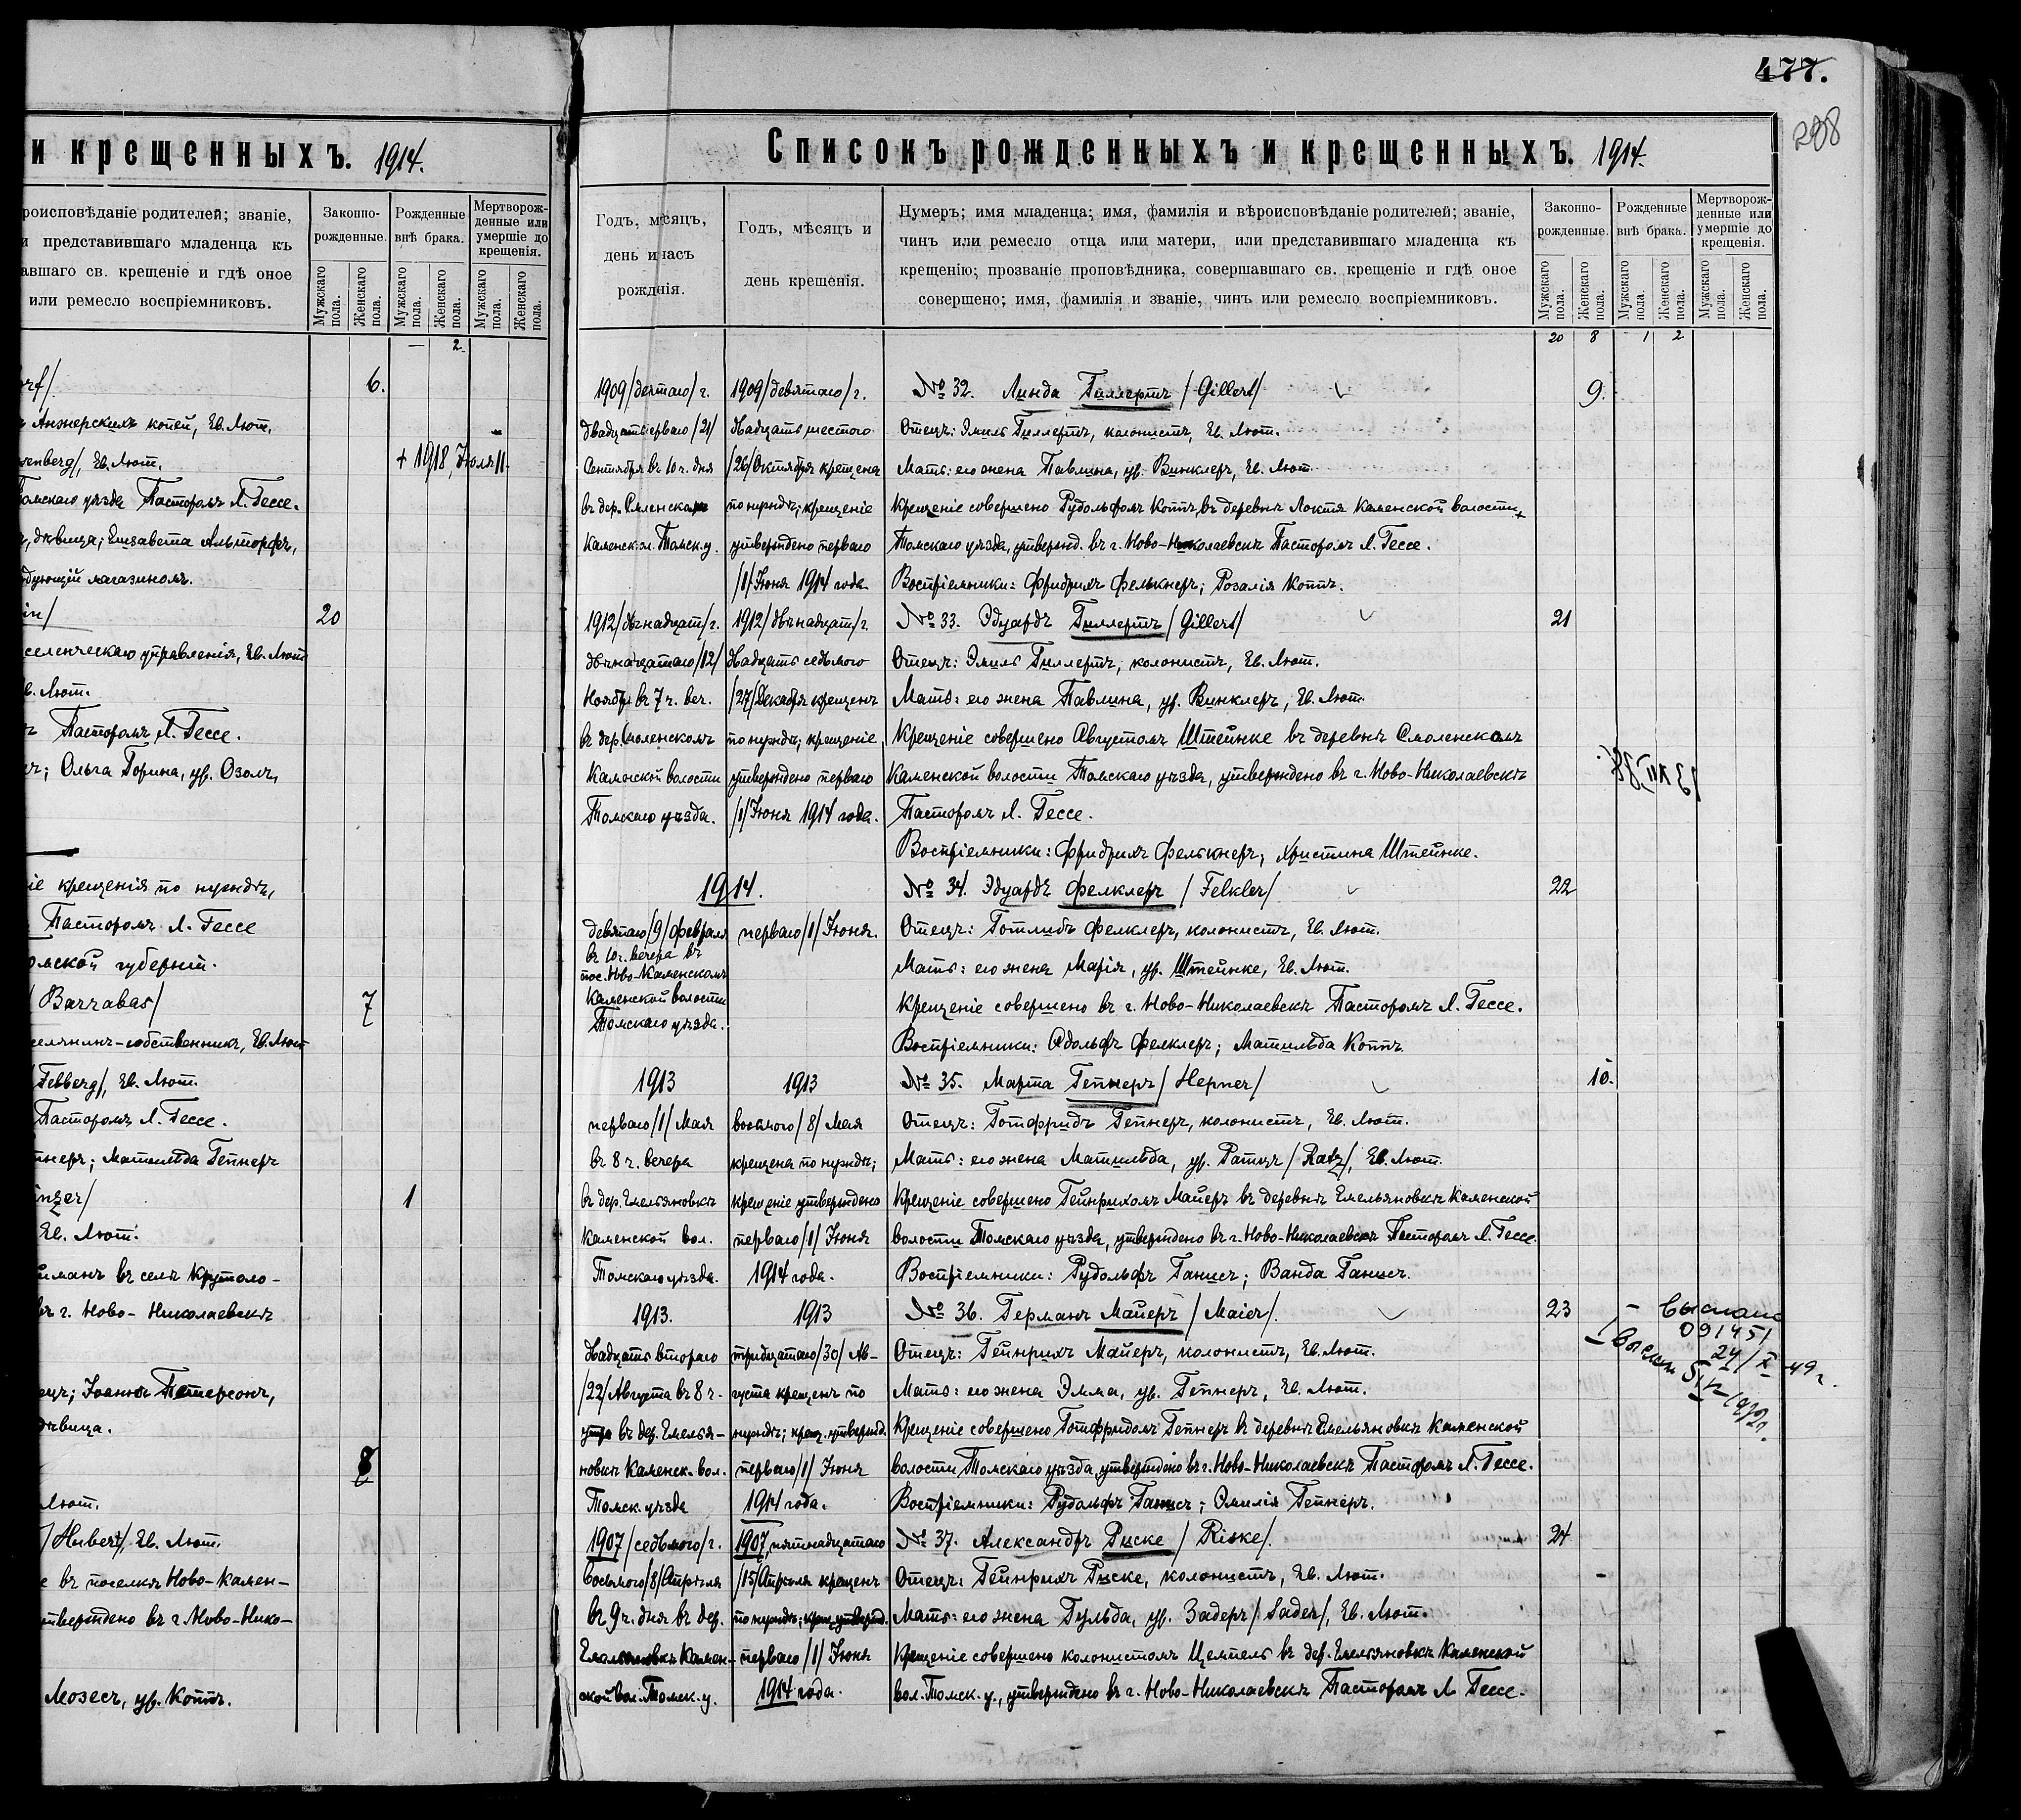 и крещенныхъ. 1914.
роисповѣданіе родителей; званіе,
и представившаго младенца къ
авшаго св. крещеніе и гдѣ оное
или ремесло воспріемниковъ.
Законно-рожденные.
Рожденные внѣ брака.
Мертворожденные или умершіе до крещенія.
Мужскаго пола.
Женскаго пола.
Мужскаго пола.
Женскаго пола.
Мужскаго пола.
Женскаго пола.
— 2.
orf/ 6.
Анжерскихъ копей, Ев. Лют.
senberg/, Ев. Лют. + 1918, Юля 11.
Томскаго уѣзда Пасторомъ Л. Гессе.
, дѣвица; Елизавета Альторфъ,
дующій магазиномъ.
in/ 20
селенческаго управленія, Ев. Лют
в. Лют.
Пасторомъ Л. Гессе.
; Ольга Горина, ур. Озолъ,
іе крещенія по нуждѣ,
Пасторомъ Л. Гессе
омской губерніи.
/Barrabas/ 7
селянинъ-собственникъ, Ев. Лют
/Felberg/, Ев. Лют.
Пасторомъ Л. Гессе.
пнеръ; Матильда Гепнеръ
inzer/ 1
Ев. Лют.
иманъ въ селѣ Крутоло-
въ г. Ново-Николаевскѣ
ецъ; Іоанна Петерсонъ,
дѣвица.
8
Лют.
/Hubert/, Ев. Лют.
е въ поселкѣ Ново-Камен-
утверждено въ г. Ново-Нико-
Мозесъ, ур. Коппъ.
477.
298
Списокъ рожденныхъ и крещенныхъ. 1914.
Годъ, мѣсяцъ, день и часъ рожденія.
Годъ, мѣсяцъ и день крещенія.
Нумеръ; имя младенца; имя, фамилія и вѣроисповѣданіе родителей; званіе,
чинъ или ремесло отца или матери, или представившаго младенца къ
крещенію; прозваніе проповѣдника, совершавшаго св. крещеніе и гдѣ оное
совершено; имя, фамилія и званіе, чинъ или ремесло воспріемниковъ.
Законно-рожденные.
Рожденные внѣ брака.
Мертворожденные или умершіе до крещенія.
Мужскаго пола.
Женскаго пола.
Мужскаго пола.
Женскаго пола.
Мужскаго пола.
Женскаго пола.
20 8 1 2
1909/девятаго/г. 1909/девятаго/г. № 32. Линда Гиллертъ /Gillert/ 9.
двадцать перваго/21/ двадцать шестого Отецъ: Эмиль Гиллертъ, колонистъ, Ев. Лют.
Сентября въ 10 ч. дня /26/Октября крещена Мать: его жена Павлина, ур. Винклеръ, Ев. Лют.
въ дер. по нуждѣ; крещеніе Крещеніе совершено Рудольфомъ Коппъ, въ деревнѣ Локтя Каменской волости
Каменск. вл. Томск. у. утверждено перваго Томскаго уѣзда, утвержд. въ г. Ново-Николаевскѣ Пасторомъ Л. Гессе.
/1/ Іюня 1914 года Воспріемники: Фридрихъ Фелькнеръ; Розалія Коппъ.
1912/двѣнадцат/г. 1912/двѣнадцат/г. № 33. Эдуардъ Гиллертъ /Gillert/ 21
двѣнадцатаго/12/ двадцать седьмого Отецъ: Эмиль Гиллертъ, колонистъ, Ев. Лют.
Ноября въ 7 ч. веч. /27/ Декабря крещенъ Мать: его жена Павлина, ур. Винклеръ, Ев. Лют.
въ дер. Смоленскомъ по нуждѣ; крещеніе Крещеніе совершено Августомъ Штейнке въ деревнѣ Смоленскомъ
Каменской волости утверждено перваго Каменской волости Томскаго уѣзда, утверждено въ г. Ново-Николаевскѣ
Томскаго уѣзда. /1/ Іюня 1914 года. Пасторомъ Л. Гессе.
Воспріемники: Фридрихъ Фелькнеръ, Христина Штейнке.
1914. № 34. Эдуардъ Фелклеръ /Felkler/ 22
девятаго/9/ Февраля перваго/1/ Іюня. Отецъ: Готлибъ Фелклеръ, колонистъ, Ев. Лют.
въ 10 ч. вечера въ
пос. Ново-Каменскомъ Мать: его жена Марія, ур. Штейнке, Ев. Лют.
Каменской волости Крещеніе совершено въ г. Ново-Николаевскѣ Пасторомъ Л. Гессе.
Томскаго уѣзда.
Воспріемники: Адольфъ Фелклеръ; Матильда Коппъ.
1913 1913 № 35. Марта Гепнеръ /Hepner/ 10.
перваго/1/ Мая восьмого/8/ Мая Отецъ: Готфридъ Гепнеръ, колонистъ, Ев. Лют.
въ 8 ч. вечера крещена по нуждѣ; Мать: его жена Матильда, ур. Ратцъ /Ratz/, Ев. Лют.
въ дер. Емельяновкѣ крещеніе утверждено Крещеніе совершено Гейнрихомъ Майеръ въ деревнѣ Емельяновкѣ Каменской
Каменской вол. перваго/1/ Іюня волости Томскаго уѣзда, утверждено въ г. Ново-Николаевскѣ Пасторомъ Л. Гессе.
Томскаго уѣзда. 1914 года. Воспріемники: Рудольфъ Ганисъ; Ванда Ганисъ.
1913. 1913 № 36. Германъ Майеръ /Maier/. 23 - Выслано
091451
24/X-49 г.
двадцать второго тридцатаго/30/ Ав- Отецъ: Гейнрихъ Майеръ, колонистъ, Ев. Лют.
/22/ Августа въ 8 ч. густа крещенъ по Мать: его жена Эмма, ур. Гепнеръ, Ев. Лют.
утра въ дер. Емелья- нуждѣ; крещ. утвержд. Крещеніе совершено Готфридомъ Гепнеръ въ деревнѣ Емельяновкѣ Каменской
новкѣ Каменск. вол. перваго/1/ Іюня волости Томскаго уѣзда, утверждено въ г. Ново-Николаевскѣ Пасторомъ Л. Гессе.
Томск. уѣзда 1914 года. Воспріемники: Рудольфъ Ганисъ; Эмилія Гепнеръ.
1907/седьмого/г. 1907, пятнадцатаго № 37. Александръ Риске /Riske/. 24
восьмого/8/ Апрѣля /15/ Апрѣля крещенъ Отецъ: Гейнрихъ Риске, колонистъ, Ев. Лют.
въ 9 ч. дня въ дер. по нуждѣ; крещ. утвержд. Мать: его жена Гульда, ур. Задеръ /Sader/, Ев. Лют.
Емельяновкѣ Камен- перваго/1/ Іюня Крещеніе совершено колонистомъ Цемпель въ дер. Емельяновкѣ Каменской
ской вол. Томск. у. 1914 года. вол. Томск. у., утверждено въ г. Ново-Николаевскѣ Пасторомъ Л. Гессе.